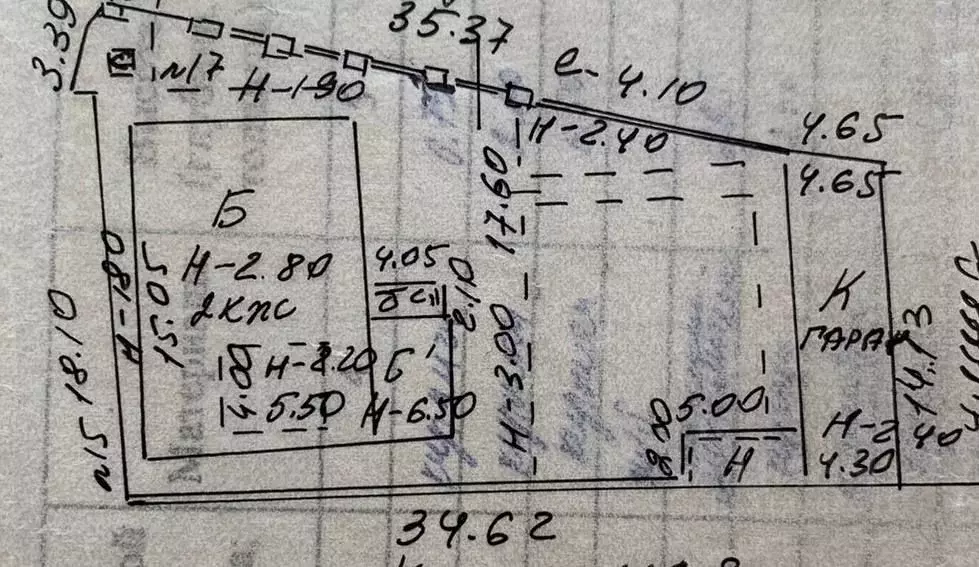 3.39
35.37
е- 4.10
N17
Н-1-90
Н-2.40
4.65
4.65
Б
Н-2.80
2кжс
15.05
Н-180
18.10
N15
4.05
2.10
17.60
Н-3.00
Б'
5.50
Н-6.50
К
ГАРАЖ
14.13
5.00
2.00
Н
Н-2
4.30
34.62